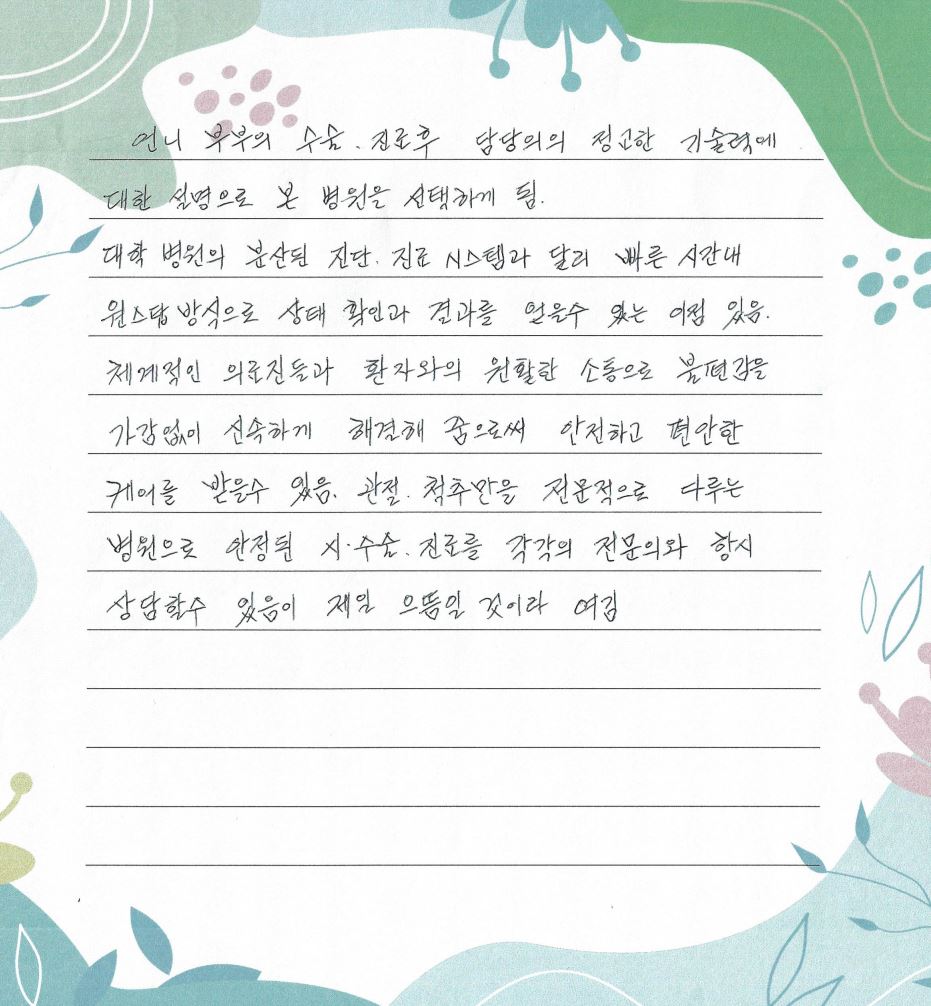 언니 부부의 수술.진료후 담당의의 정교한 기술력에
대한 설명으로 본 병원을 선택하게 됨.
대학 병원의 분산된 진단.진료 시스템과 달리 빠른 시간내
원스탑 방식으로 상태 확인과 결과를 얻을수 있는 이점 있음.
체계적인 의료진들과 환자와의 원활한 소통으로 불편감을
가감없이 신속하게 해결해 줌으로써 안전하고 편안한
케어를 받을수 있음. 관절.척추만을 전문적으로 다루는
병원으로 안정된 시·수술.진료를 각각의 전문의와 항시
상담할수 있음이 제일 으뜸일 것이라 여김